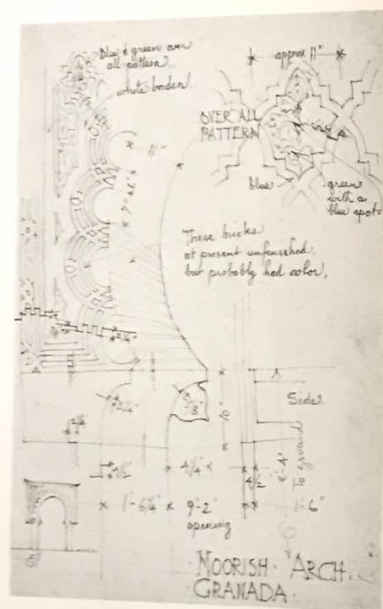 blue & green over
all pattern
white border
approx 11"
OVER ALL
PATTERN
11"
blue
green
with a
blue spot
These bricks
at present unfinished.
but probably had color,
Side
10"
4½
4¼"
4½
1'-6¼"
9'-2"
opening
1'-6"
MOORISH · ARCH.
GRANADA ·